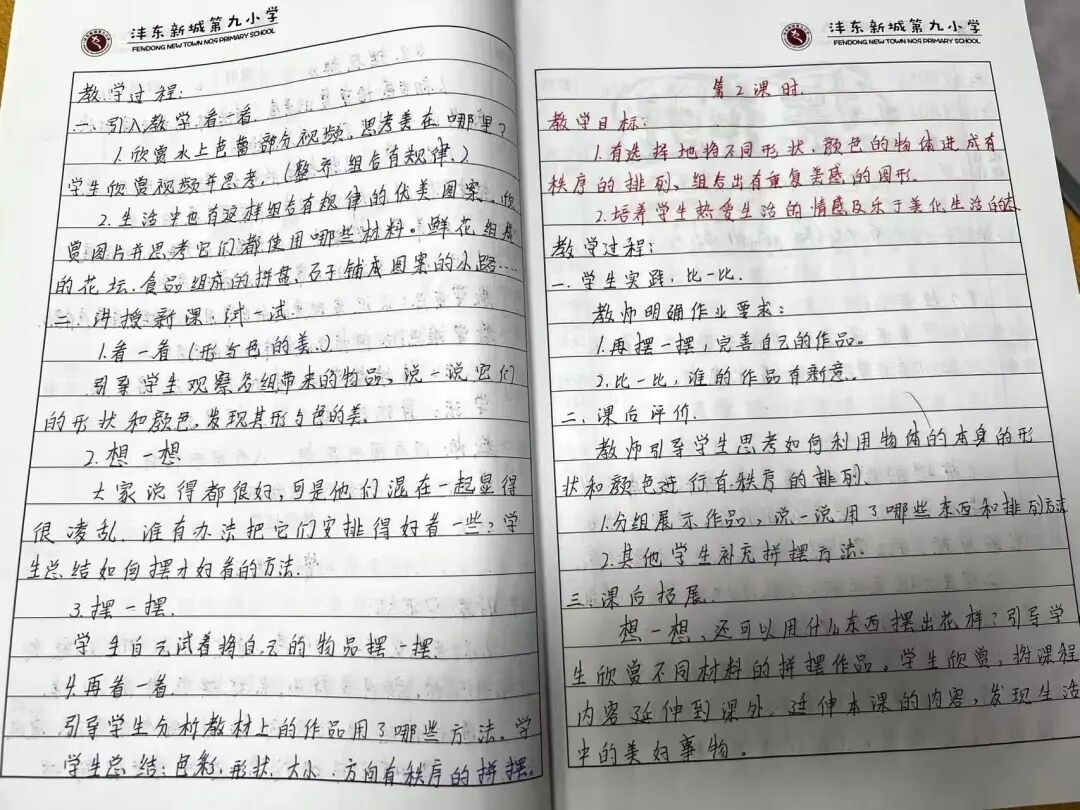 沣东新城第九小学
FENDONG NEW TOWN NO9 PRIMARY SCHOOL
教学过程:
一、引入教学,看一看.
1.欣赏水上芭蕾部分视频,思考美在哪里?
学生欣赏视频并思考.(整齐.组合有规律.)
2.生活中也有这样组合有规律的优美图案.欣
赏图片并思考它们都使用哪些材料。鲜花组成
的花坛.食品组成的拼盘、石子铺成图案的小路……
二.讲授新课.试一试.
1.看一看(形与色的美.)
引导学生观察各组带来的物品,说一说它们
的形状和颜色,发现其形与色的美.
2.想一想
大家说得都很好,可是他们混在一起显得
很凌乱.谁有办法把它们安排得好看一些?学
生总结如何摆才好看的方法.
3.摆一摆.
学生自己试着将自己的物品摆一摆.
4.再看一看.
引导学生分析教材上的作品用了哪些方法。学
学生总结:色彩.形状.大小.方向有秩序的拼摆.
沣东新城第九小学
FENDONG NEW TOWN NO9 PRIMARY SCHOOL
第2课时.
教学目标:
1.有选择地将不同形状.颜色的物体进成有
秩序的排列、组合出有重复美感的图形.
2.培养学生热爱生活的情感及乐于美化生活的
教学过程:
一.学生实践,比一比.
教师明确作业要求:
1.再摆一摆,完善自己的作品。
2.比一比,谁的作品有新意.
二.课后评价.
教师引导学生思考如何利用物体的本身的形
状和颜色进行有秩序的排列.
1.分组展示作品,说一说用了哪些东西和排列方法
2.其他学生补充拼摆方法.
三.课后拓展.
想一想、还可以用什么东西摆出花样?引导学
生欣赏不同材料的拼摆作品。学生欣赏,将课程
内容延伸到课外.延伸本课的内容,发现生活
中的美好事物。